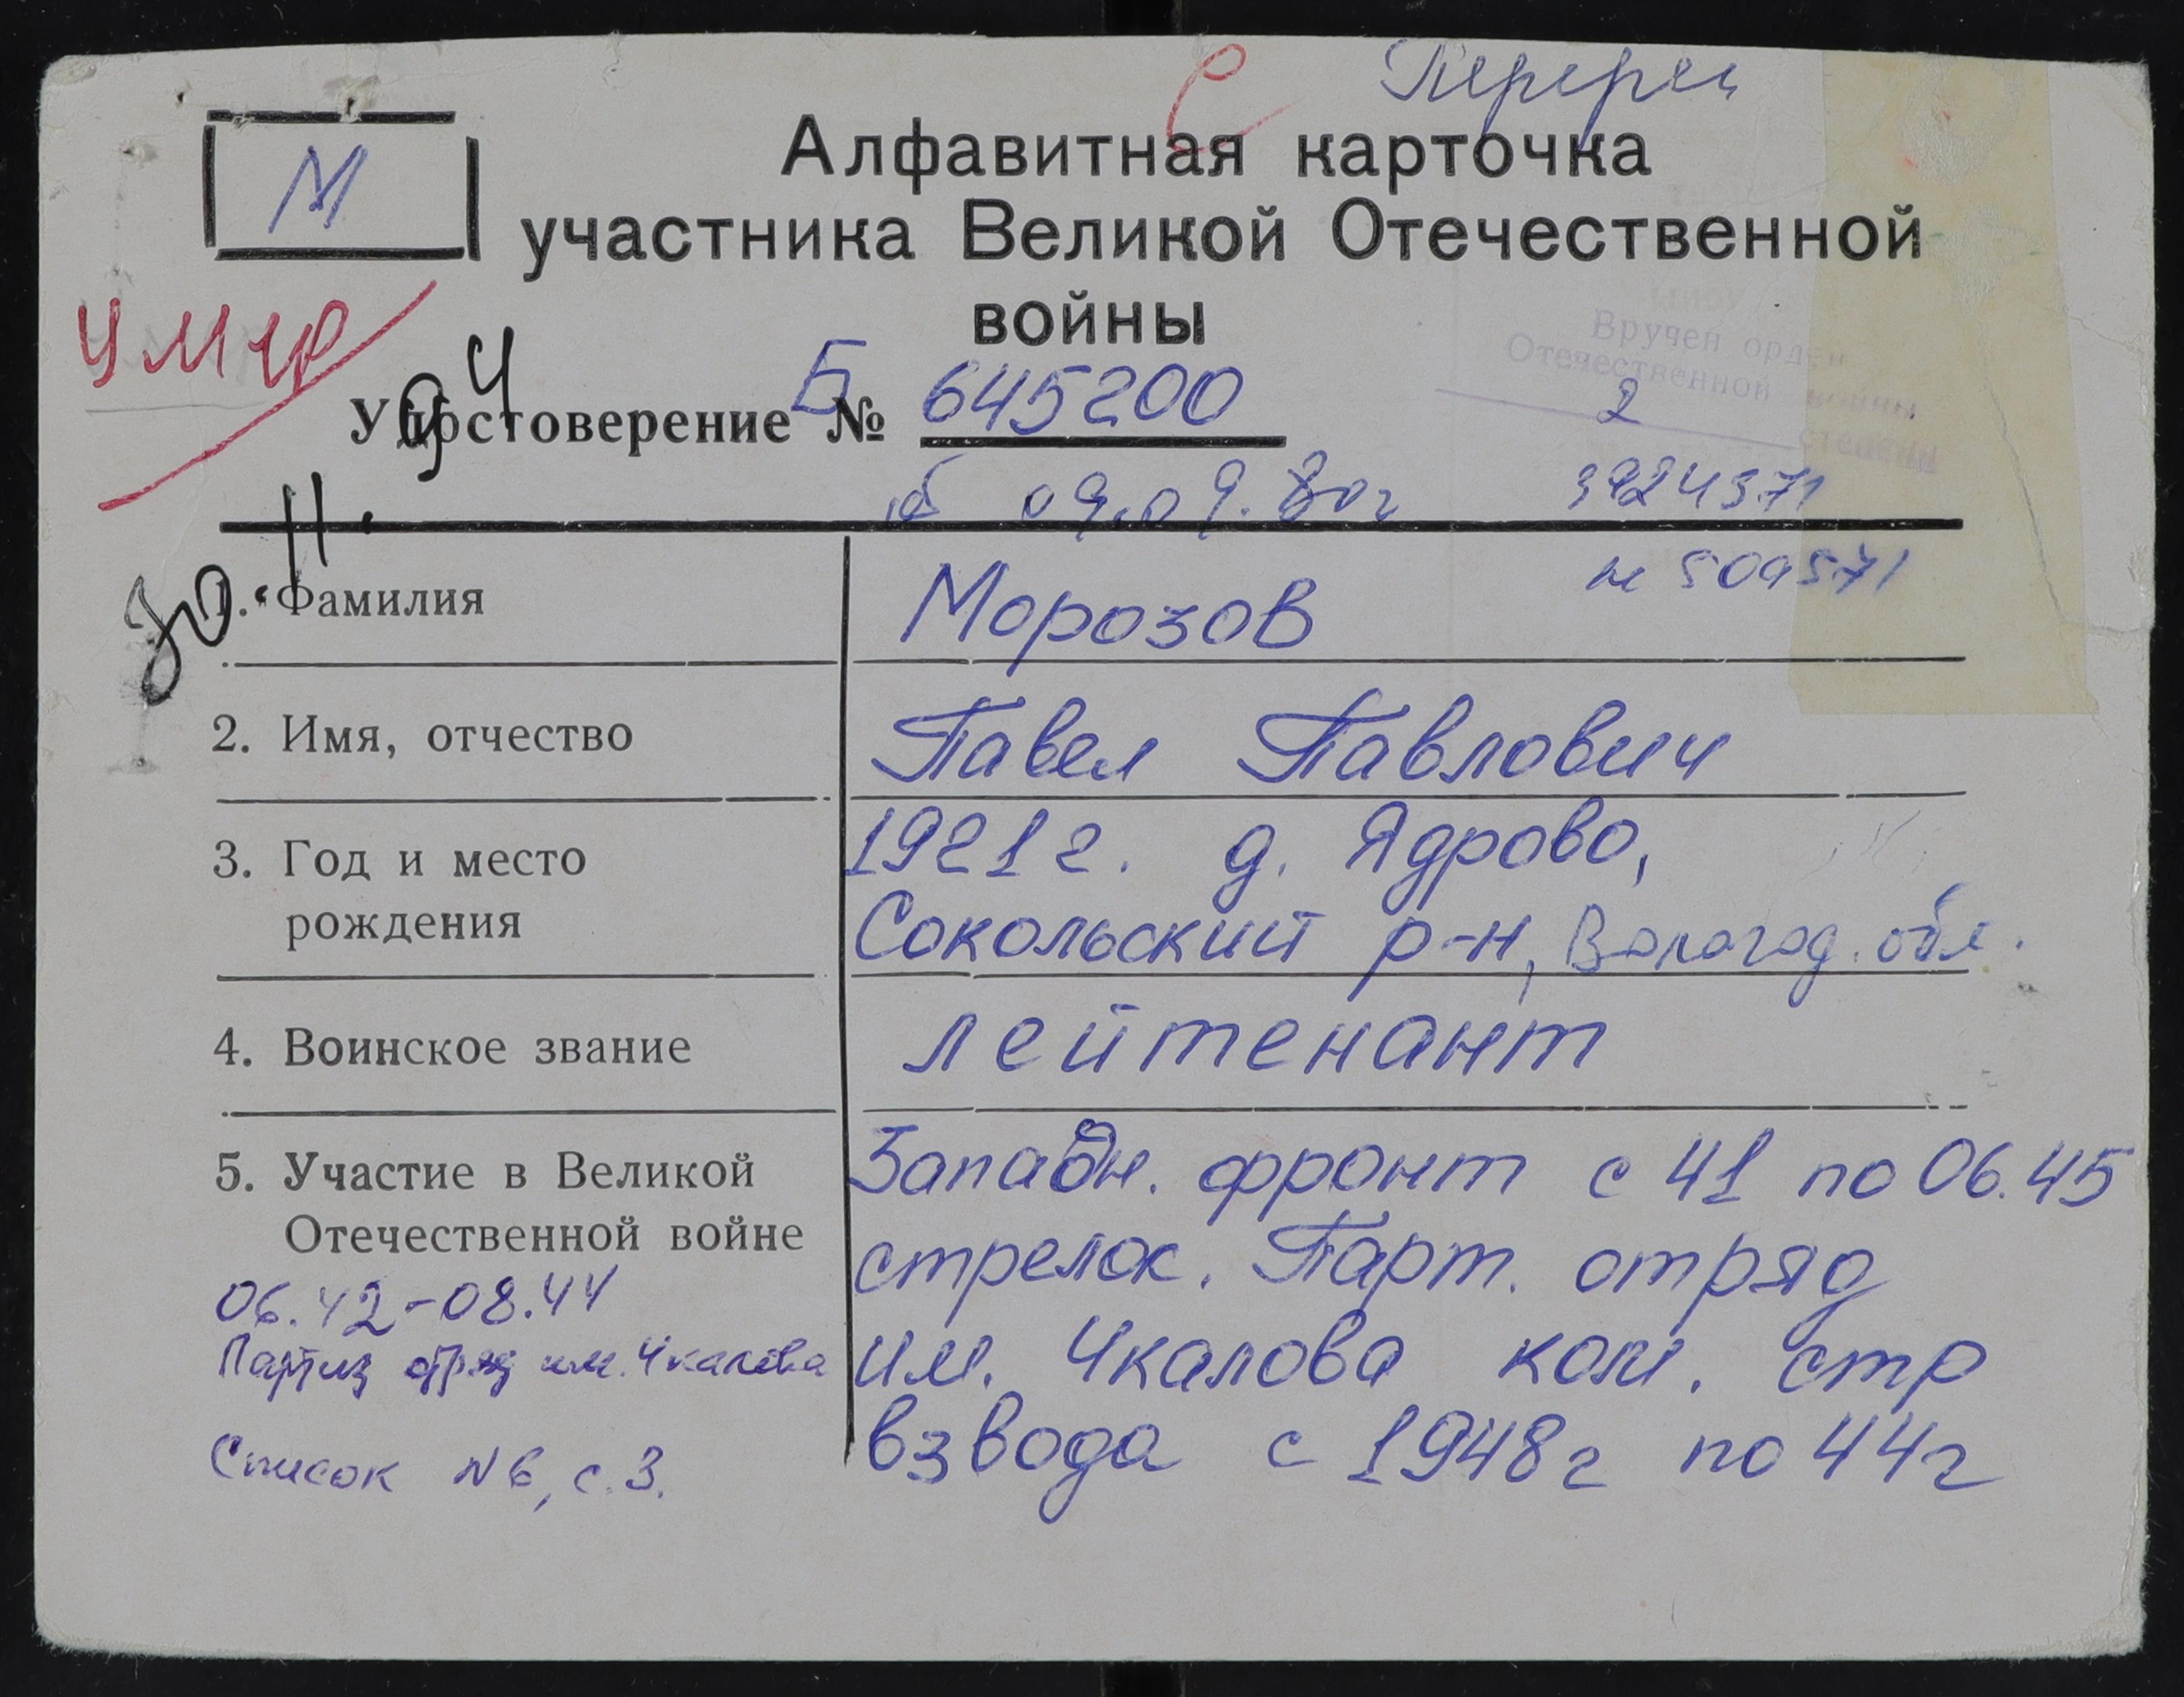 С
М
Алфавитная карточка
участника Великой Отечественной
войны
умер
30.11.94
Вручен орден
Отечественной войны
2 степени
Удостоверение Б № 645200
09.09.80г 3924371
1. Фамилия Морозов
2. Имя, отчество Павел Павлович
3. Год и место 1921г. д. Ядрово,
рождения Сокольский р-н, Вологод. обл.
4. Воинское звание лейтенант
5. Участие в Великой Западн. фронт с 41 по 06.45
Отечественной войне стрелок. Парт. отряд
06.42-08.44
Партиз отряд им. Чкалова им. Чкалова ком. стр
взвода с 1948г по 44г
Список N6, с.3.